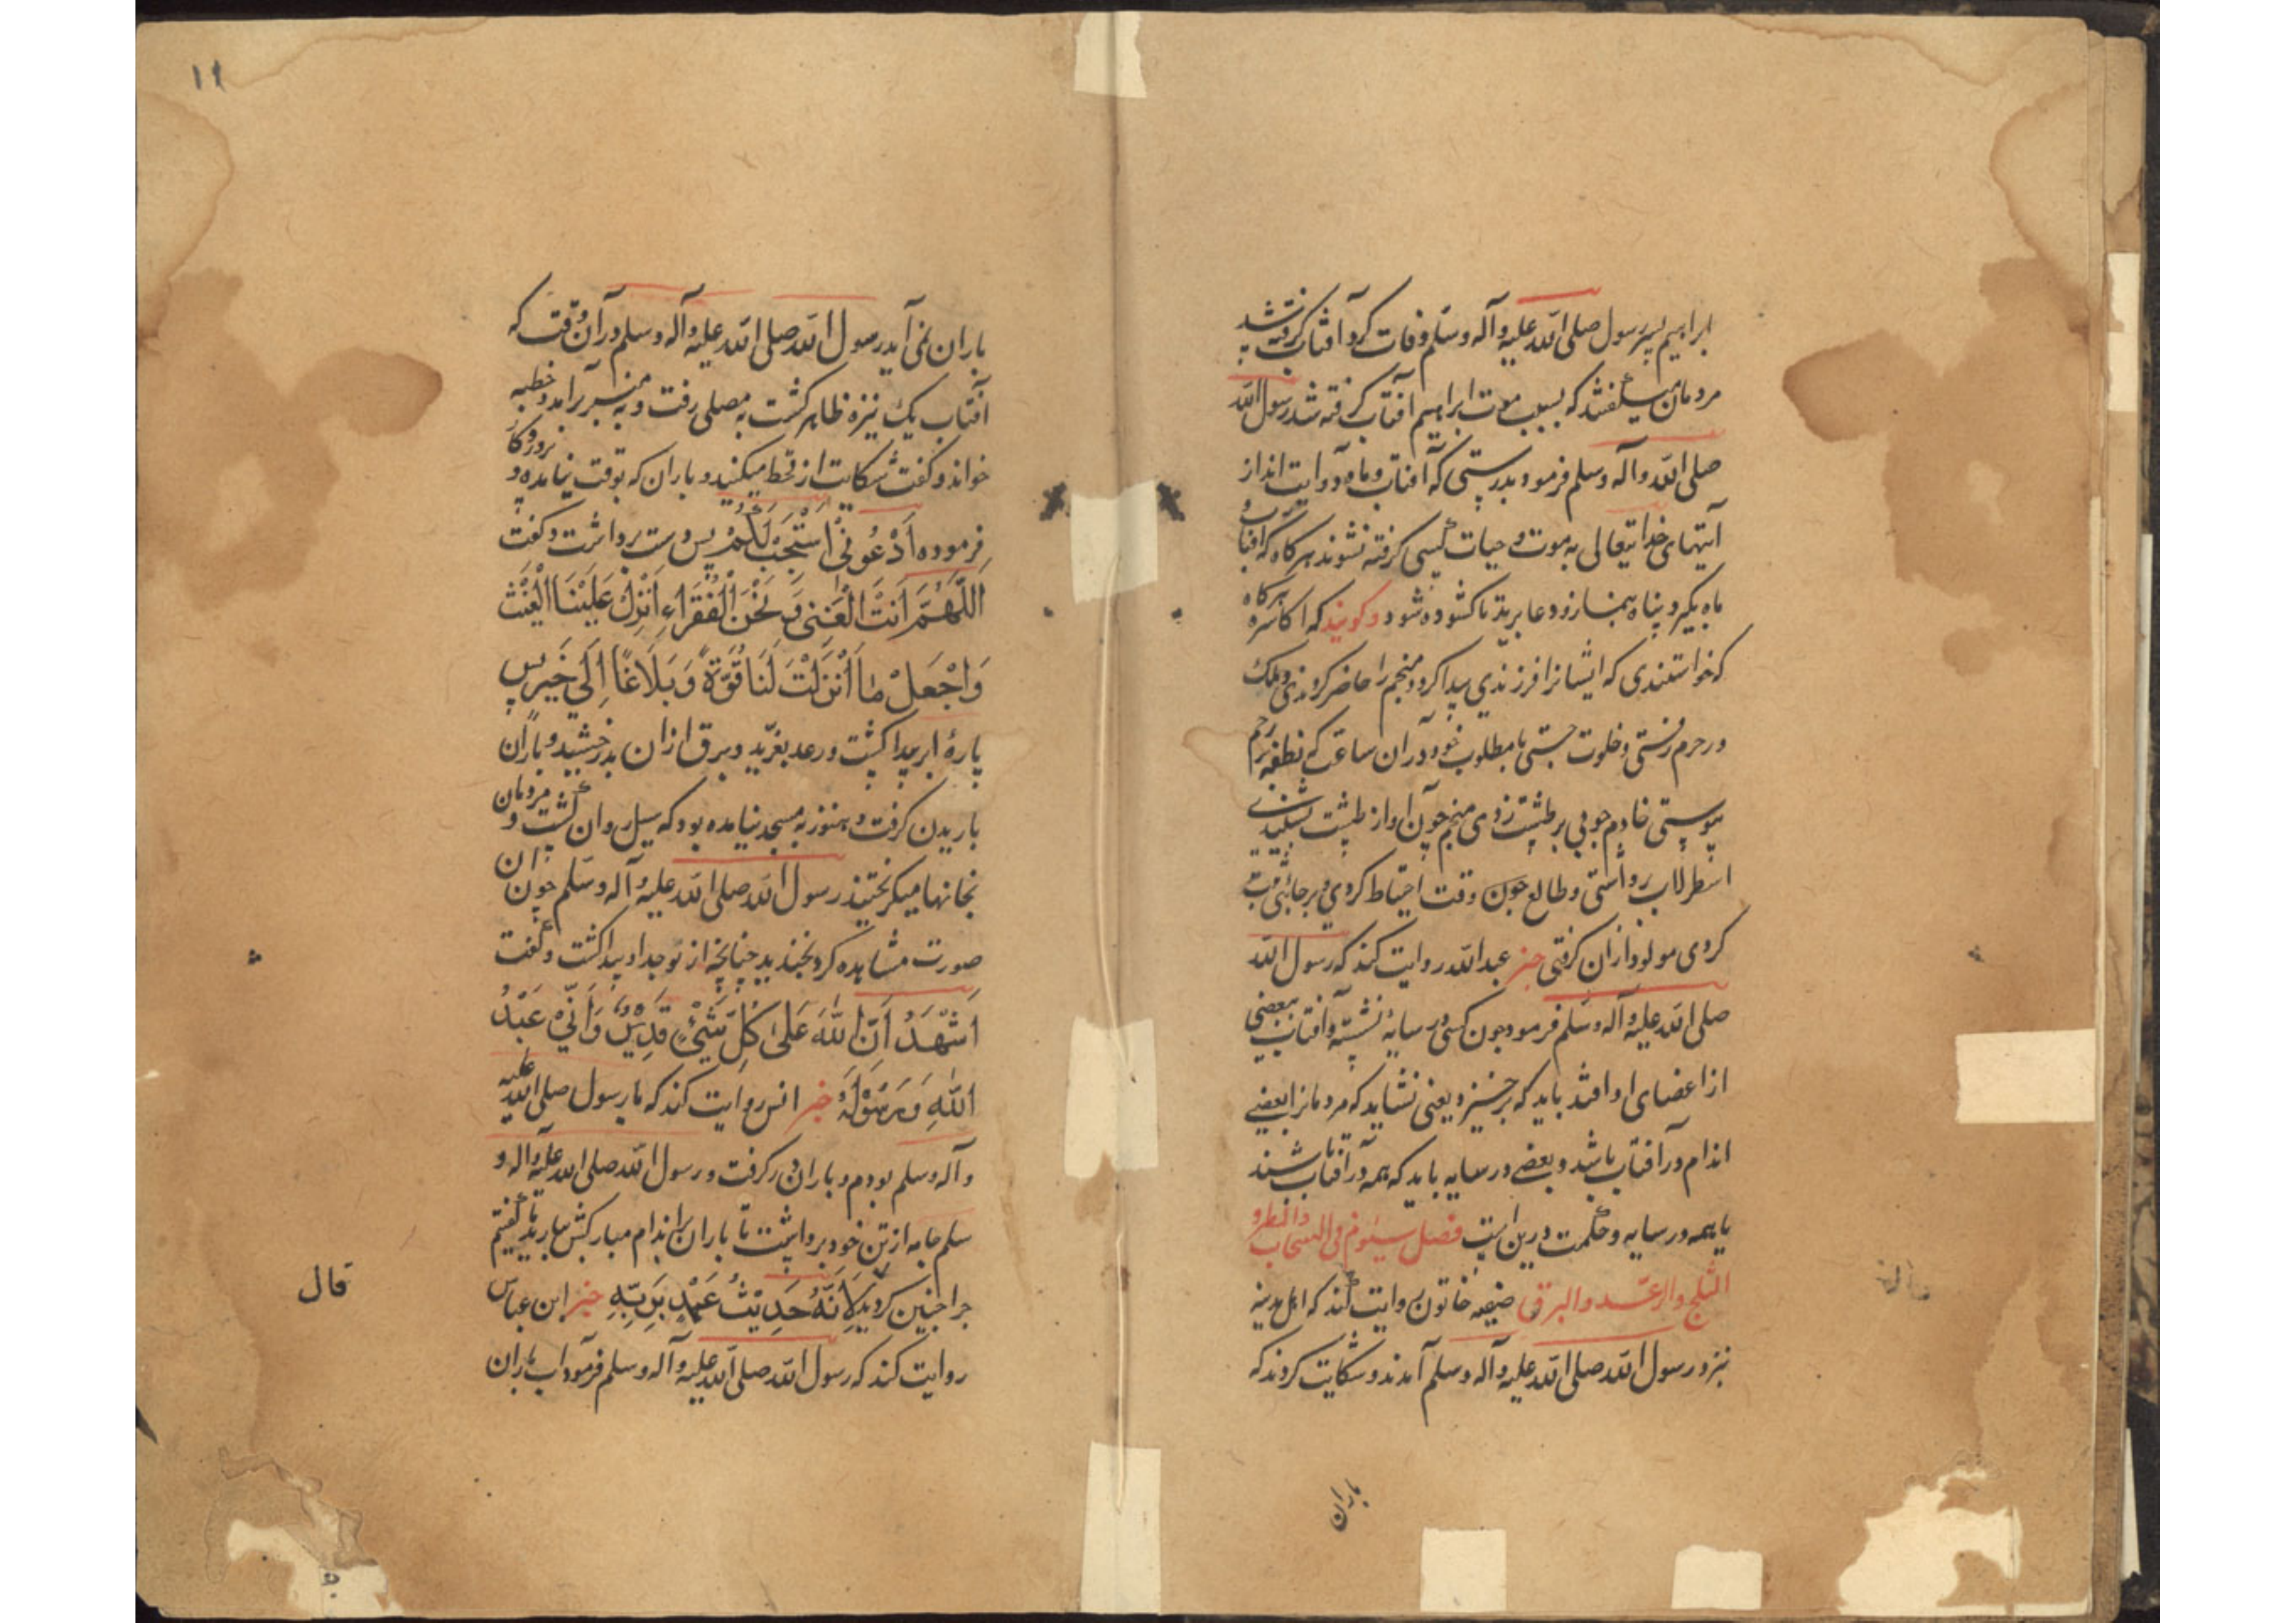 ابراهیم پسر رسول صلی الله علیه وآله وسلم وفات کرد آفتاب گرفته شد
مردمان میگفتند که بسبب موت ابراهیم آفتاب گرفته شد رسول الله
صلی الله وآله وسلم فرمود بدرستی که آفتاب و ماه دو آیت اند از
آیتهای خدایتعالی به موت و حیات کسی گرفته نشوند هر گاه که آفتاب و
ماه بگیرد پناه بنماز و دعا برید تا کشوده شود و گویند که اکاسره هر گاه
که خواستندی که ایشانرا فرزندی پیدا کرد منجم را حاضر کردندی و ملک
در حرم رفتی و خلوت جستی با مطلوب خود و در آن ساعت که نطفه برحم
پیوستی خادم چوبی بر طشت زدی منجم چون آواز طشت بشنیدی
اسطرلاب برداشتی و طالع چون وقت احتیاط کردی و بر جائی ثبت
کردی مولود از آن گرفتی خبر عبدالله روایت کند که رسول الله
صلی الله علیه وآله وسلم فرمود چون کسی در سایه نشسته و آفتاب ببعضی
از اعضای او افتد باید که برخیزد یعنی نشاید که مردمانرا بعضی
اندام در آفتاب باشد و بعضی در سایه باید که همه در آفتاب باشند
یا همه در سایه و حکمت درین است فصل سیوم فی السحاب والمطر و
الثلج والرعد والبرق ضیفه خاتون روایت کند که اهل مدینه
نزد رسول الله صلی الله علیه وآله وسلم آمدند و شکایت کردند که
باران
۱۱
باران نمی آید رسول الله صلی الله علیه وآله وسلم در آن وقت که
آفتاب یک نیزه ظاهر گشت به مصلی رفت و به منبر برآمد و خطبه
خواند و گفت شکایت از قحط میکنید و باران که بوقت نیامده و پروردگار
فرموده اَدْعُونِی اَسْتَجِبْ لَکُمْ پس دست برداشت و گفت
اَللّهُمَّ اَنْتَ الْغَنِی وَ نَحْنُ الْفُقَرَاءِ اَنْزِلْ عَلَیْنَا الْغَیْثَ
وَاجْعَلْ مَا اَنْزَلْتَ لَنَا قُوَّةً وَ بَلَاغًا اِلَی خَیْرٍ پس
پارهٔ ابر پیدا گشت و رعد بغرید و برق از آن بدرخشید و باران
باریدن گرفت و هنوز به مسجد نیامده بود که سیل روان گشت و مردمان
بخانها میگریختند رسول الله صلی الله علیه وآله وسلم چون آن
صورت مشاهده کرد بخندید چنانچه از نوجد او پیدا گشت و گفت
اَشْهَدُ اَنَّ اللهَ عَلَی کُلِّ شَیْئٍ قَدِیْرٌ وَ اَنِّیْ عَبْدُ
اللهِ وَ رَسُوْلُهُ خبر انس روایت کند که با رسول صلی الله علیه
وآله وسلم بودم و باران در گرفت و رسول الله صلی الله علیه وآله و
سلم جامه از تن خود برداشت تا باران باندام مبارکش بارید ما گفتیم
چرا چنین کردید لِاَنَّهُ حَدِیْثُ عَهْدٍ بِرَبِّهِ خبر ابن عباس
روایت کند که رسول الله صلی الله علیه وآله وسلم فرمود آب باران
قال